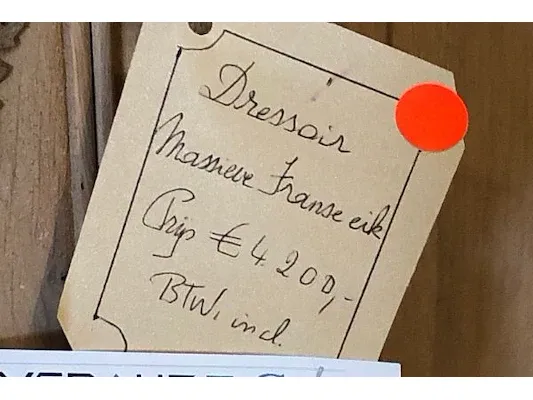 Dressoir
Massieve Franse eik
Prijs € 4.200,-
BTW, incl.